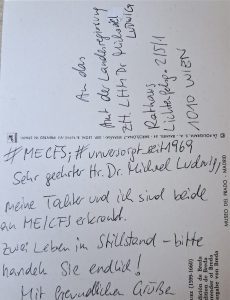 An das
Amt der Landesregierung
ZH LHM Dr. Michael
LUDWIG
Rathaus
Lichtenfelsg. 2/5/1
1010 WIEN
#MECFS; #unversorgtseit1969
Sehr geehrter Hr. Dr. Michael Ludwig,
meine Tochter und ich sind beide
an ME/CFS erkrankt.
Zwei Leben im Stillstand – bitte
handeln Sie endlich!
Mit freundlichen Grüße
MUSEO DEL PRADO - MADRID
(1599-1660)